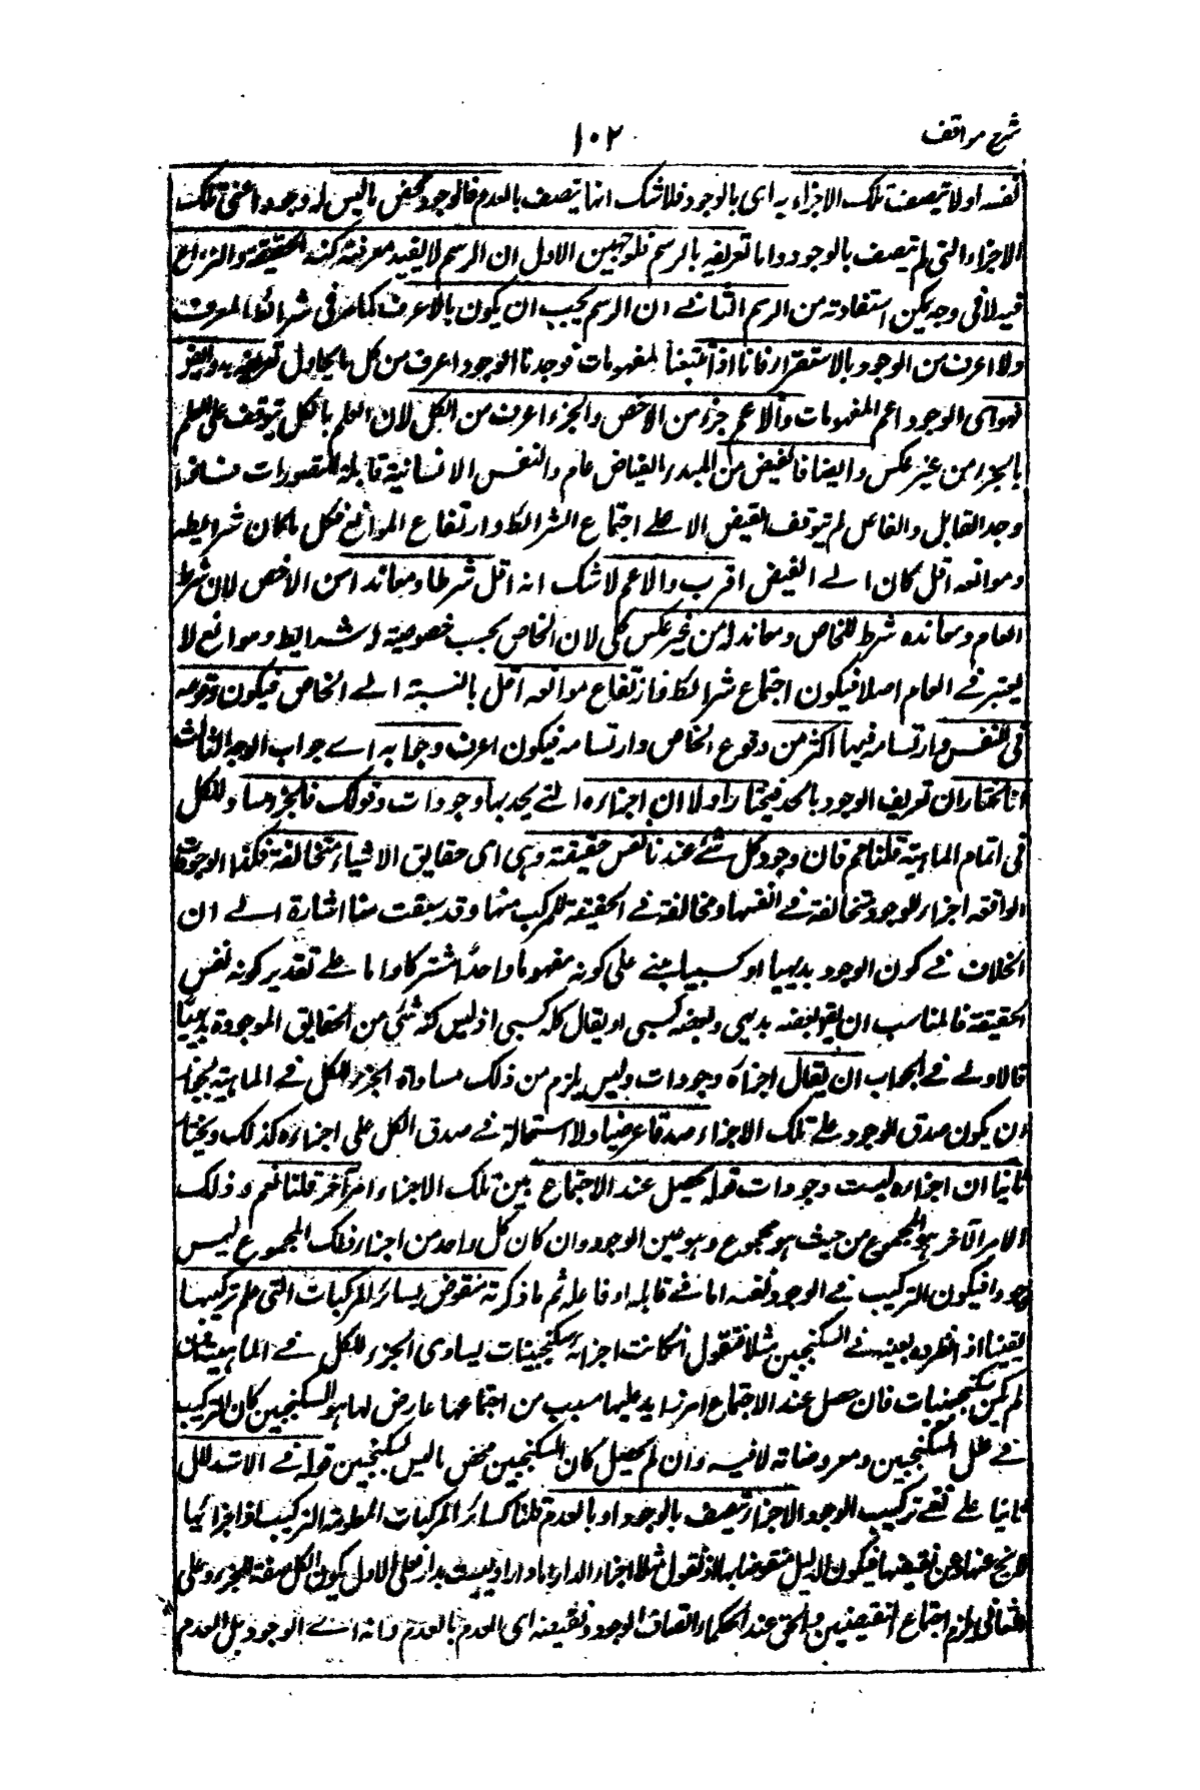 شرح مواقف
١٠٢
نفسه او لا تتصف تلك الاجزاء به اى بالوجود فلا شك انها تتصف بالعدم فالوجود محض ما ليس له وجود اعنى تلك
الاجزاء التى لم تتصف بالوجود واما تعريفه بالرسم فلوجهين الاول ان الرسم لا يفيد معرفة كنه الحقيقة والنزاع
فيه لا فى وجه يمكن استفادته من الرسم الثانے ان الرسم يجب ان يكون بالاعرف كما مر فى شرائط المعرف
ولا اعرف من الوجود بالاستقراء فانا اذا تتبعنا المفهومات فوجدنا الوجود اعرف من كل ما يحاول تعريفه به وايضا
فهو اى الوجود اعم المفهومات والاعم جزء من الاخص والجزء اعرف من الكل لان العلم بالكل يتوقف على العلم
بالجزء من غير عكس وايضا فالفيض من المبدء الفياض عام والنفس الانسانية قابلة للتصورات فاذا
وجد القابل والفاعل لم يتوقف الفيض الا علے اجتماع الشرائط وارتفاع الموانع فكل ما كان شرايطه
وموانعه اقل كان الے الفيض اقرب والاعم لا شك انه اقل شرطا ومعاندا من الاخص لان شرط
العام ومعانده شرط للخاص ومعاند له من غير عكس كلى لان الخاص بحسب خصوصيته له شرايط وموانع لا
يعتبر فے العام اصلا فيكون اجتماع شرائطه وارتفاع موانعه اقل بالنسبة الے الخاص فيكون وقوعه
فى النفس وارتسامه فيها اكثر من وقوع الخاص وارتسامه فيكون اعرف وجوابه اے جواب الوجه الثالث
انا نختار ان تعريف الوجود بالحد فيختار اولا ان اجزاءه الے يحد بها وجودات وقولك فالجزء مساو للكل
فى تمام الماهية قلنا نعم فان وجود كل شئے عندنا نفس حقيقته وهى اى حقايق الاشياء متخالفة فكذا الوجودات
الواقعة اجزاء للوجود متخالفة فے انفسها ومخالفة فے الحقيقة للمركب منها وقد سبقت منا اشارة الے ان
الخلاف فے كون الوجود بديهيا او كسبيا مبنے على كونه مفهوما واحدا مشتركا واما علے تقدير كونه نفس
الحقيقة فالمناسب ان يقه بعضه بديهى وبعضه كسبى او يقال كله كسبى اذ ليس كنه شئ من الحقايق الموجودة بديهيا
فالاولے فے الجواب ان يقال اجزاءه وجودات وليس يلزم من ذلك مساواة الجزء للكل فے الماهية لجواز
ان يكون صدق الوجود علے تلك الاجزاء صدقا عرضيا ولا استحالة فے صدق الكل على اجزاءه كذلك ويختار
ثانيا ان اجزاءه ليست وجودات قوله يحصل عند الاجتماع بين تلك الاجزاء امر آخر قلنا نعم وذلك
الامر الآخر هو المجموع من حيث هو مجموع وهو عين الوجود وان كان كل واحد من اجزاء ذلك المجموع ليس
وجودا فيكون التركيب فے الوجود نفسه لا فے قابله او فاعله ثم ما ذكرته منقوض بسائر المركبات التى علم تركيبها
يقينا اذ نطرده بعينه فے السكنجبين مثلا فنقول ان كانت اجزائه سكنجبينات يساوى الجزء للكل فے الماهية وان
لم تكن سكنجبينات فان حصل عند الاجتماع امر زايد عليها مسبب من اجتماعها عارض لها هو السكنجبين كان التركيب
فے علل السكنجبين ومعروضاته لا فيه وان لم يحصل كان السكنجبين محض ما ليس سكنجبين قوله فے الاستدلال
ثانيا علے نفے تركيب الوجود الاجزاء تتصف بالوجود او بالعدم قلنا كسائر المركبات المعلومة التركيب اذ اجزائها
لا تخ عنها وعن نقيضها فيكون الدليل منقوضا بها اذ نقول مثلا اجزاء الدار اما دار او ليست بدار فعلى الاول يكون الكل صفة للجزء وعلى
الثانى يلزم اجتماع النقيضين والحق عند الحكماء اتصاف الوجود بنقيضه اى العدم بالعدم فانه اے الوجود بل العدم